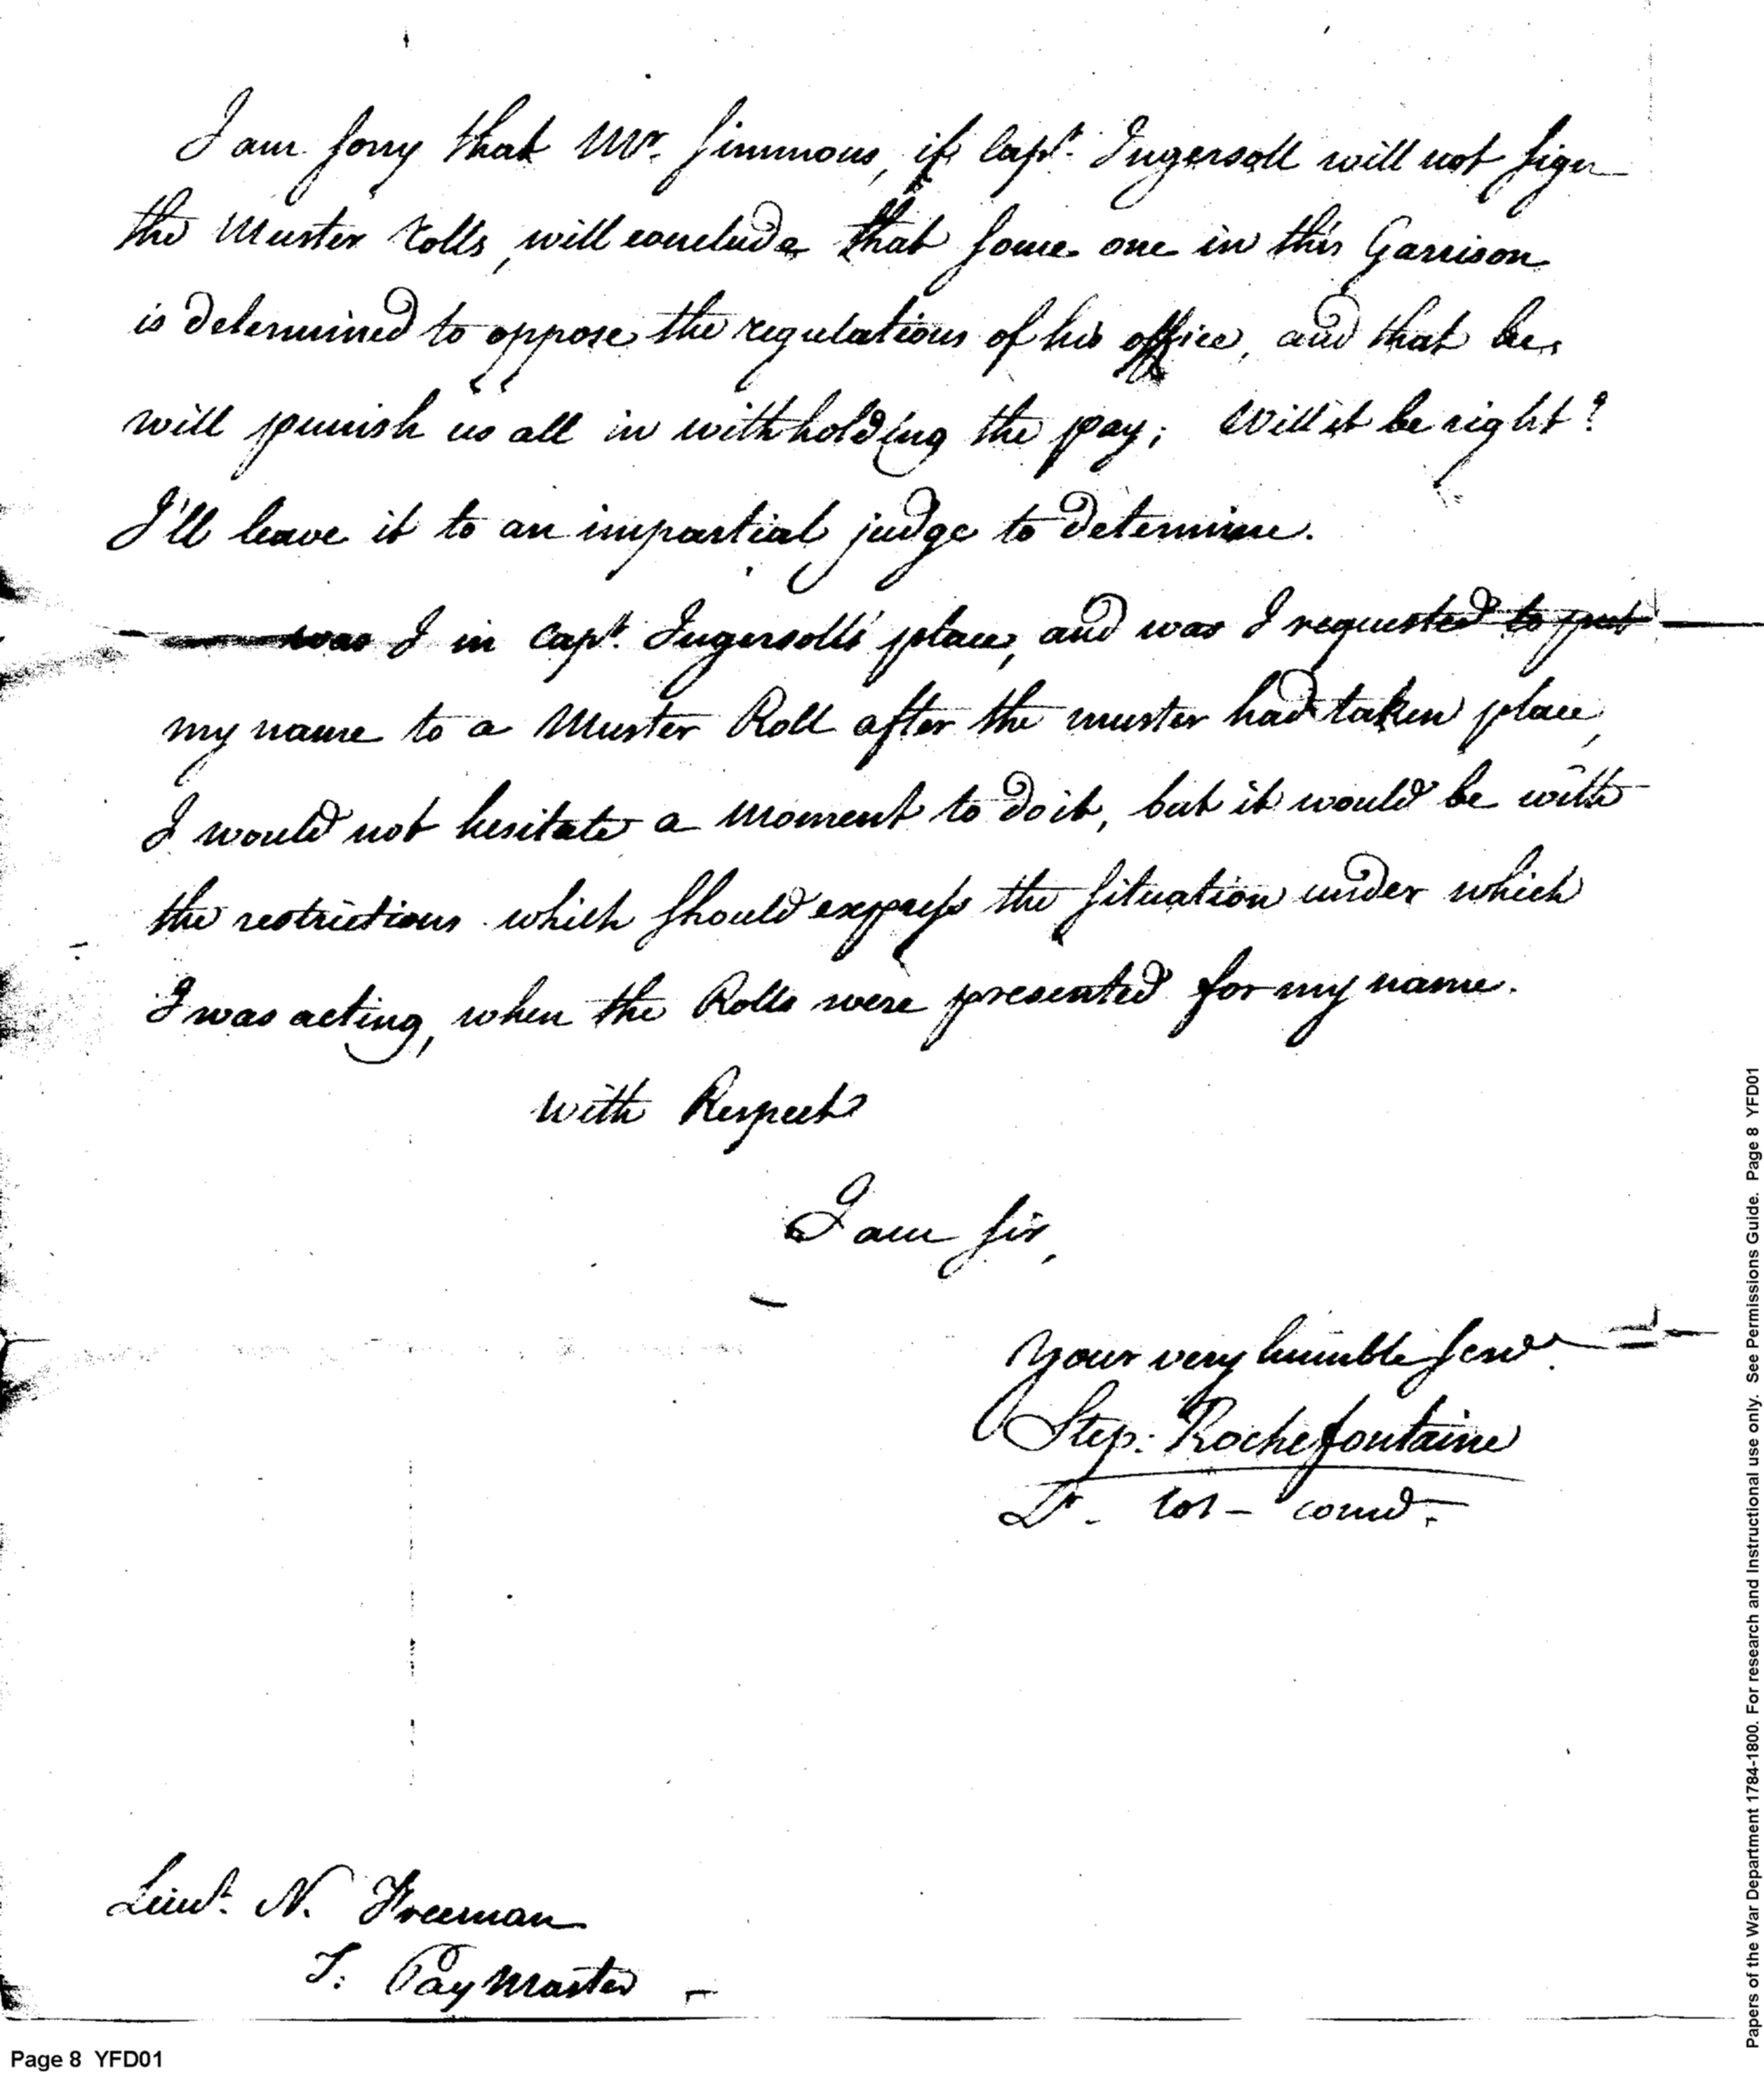 I am sorry that Mr. Simmons, if Capt. Ingersoll will not sign
the Muster rolls, will conclude that some one in this Garrison
is determined to oppose the regulations of his office, and that he
will punish us all in withholding the pay; Will it be right?
I'll leave it to an impartial judge to determine.
was I in Capt. Ingersoll's place, and was I requested to put
my name to a Muster Roll after the muster had taken place,
I would not hesitate a Moment to do it, but it would be with
the restrictions which should express the situation under which
I was acting, when the Rolls were presented for my name.
with Respect
I am Sir,
Your very humble Servt.
Step: Rochefontaine
Lt. Col - comd.
Lieut. N. Freeman
T. Pay Master
Page 8 YFD01
Papers of the War Department 1784-1800. For research and Instructional use only. See Permissions Guide. Page 8 YFD01